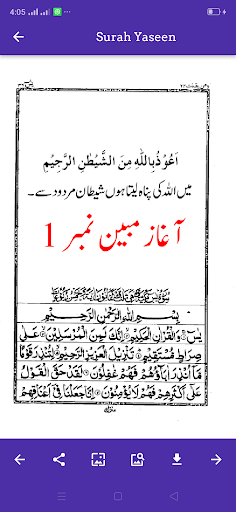 4:05
Surah Yaseen
اَعُوْذُ بِاللّٰهِ مِنَ الشَّيْطٰنِ الرَّجِيْمِ
میں اللہ کی پناہ لیتا ہوں شیطان مردود سے۔
آغاز مبین نمبر 1
بِسْمِ اللّٰهِ الرَّحْمٰنِ الرَّحِيْمِ
يٰسٓ ۚ وَالْقُرْاٰنِ الْحَكِيْمِ ۙ اِنَّكَ لَمِنَ الْمُرْسَلِيْنَ ۙ عَلٰى
صِرَاطٍ مُّسْتَقِيْمٍ ؕ تَنْزِيْلَ الْعَزِيْزِ الرَّحِيْمِ ۙ لِتُنْذِرَ قَوْمًا
مَّاۤ اُنْذِرَ اٰبَآؤُهُمْ فَهُمْ غٰفِلُوْنَ لَقَدْ حَقَّ الْقَوْلُ
عَلٰۤى اَكْثَرِهِمْ فَهُمْ لَا يُؤْمِنُوْنَ اِنَّا جَعَلْنَا فِيْۤ اَعْنَاقِهِمْ